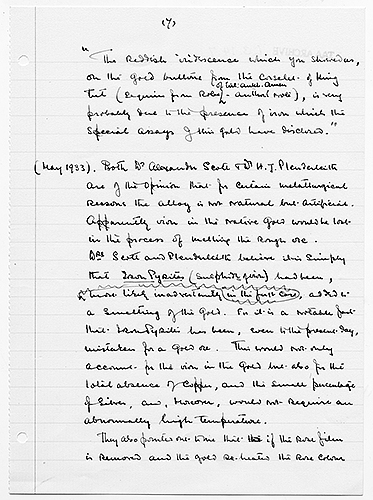 (7)
"The Reddish iridescence which you showed us,
on the Gold buttons from the Corselet of King
of Tut-ankh-Amen
Tut (Sequins from Robe - author's note), is very
probably due to the presence of iron which the
Special assays of this gold have disclosed."
(May 1933). Both Dr Alexander Scott & Dr H. J. Plenderleith
are of the opinion that for certain metallurgical
reasons the alloy is not natural but artificial.
Apparently iron in the native Gold would be lost
in the process of melting the rough ore.
Drs Scott and Plenderleith believe it is simply
that Iron Pyrites (Sulphide of iron) had been,
most likely inadvertently in the first case, added to
a smelting of the Gold. For it is a notable fact
that Iron Pyrites has been, even to the present day,
mistaken for a Gold ore. This would not only
account for the iron in the Gold but also for the
total absence of Copper, and the small percentage
of Silver, and, moreover, would not require an
abnormally high temperature.
They also pointed out to me that if the Rose film
is removed and the Gold re-heated the Rose Colour